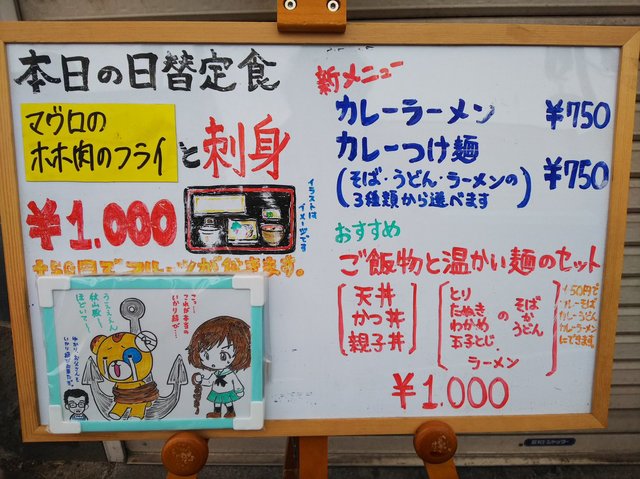 本日の日替定食
マグロの
ホホ肉のフライと刺身
¥1.000
イラストは
イメージです
+50円でフルーツが付きます。
新メニュー
カレーラーメン ¥750
カレーつけ麺 ¥750
(そば・うどん・ラーメンの
3種類から選べます)
おすすめ
ご飯物と温かい麺のセット
天丼
かつ丼
親子丼
とり
たぬき
わかめ
玉子とじ
の
そば
か
うどん
ラーメン
+50円で
カレーそば
カレーうどん
カレーラーメン
にできます。
¥1.000
こっ…
これが本当の
いかり結び…
うええぇん
秋山殿〜
ほどいて〜